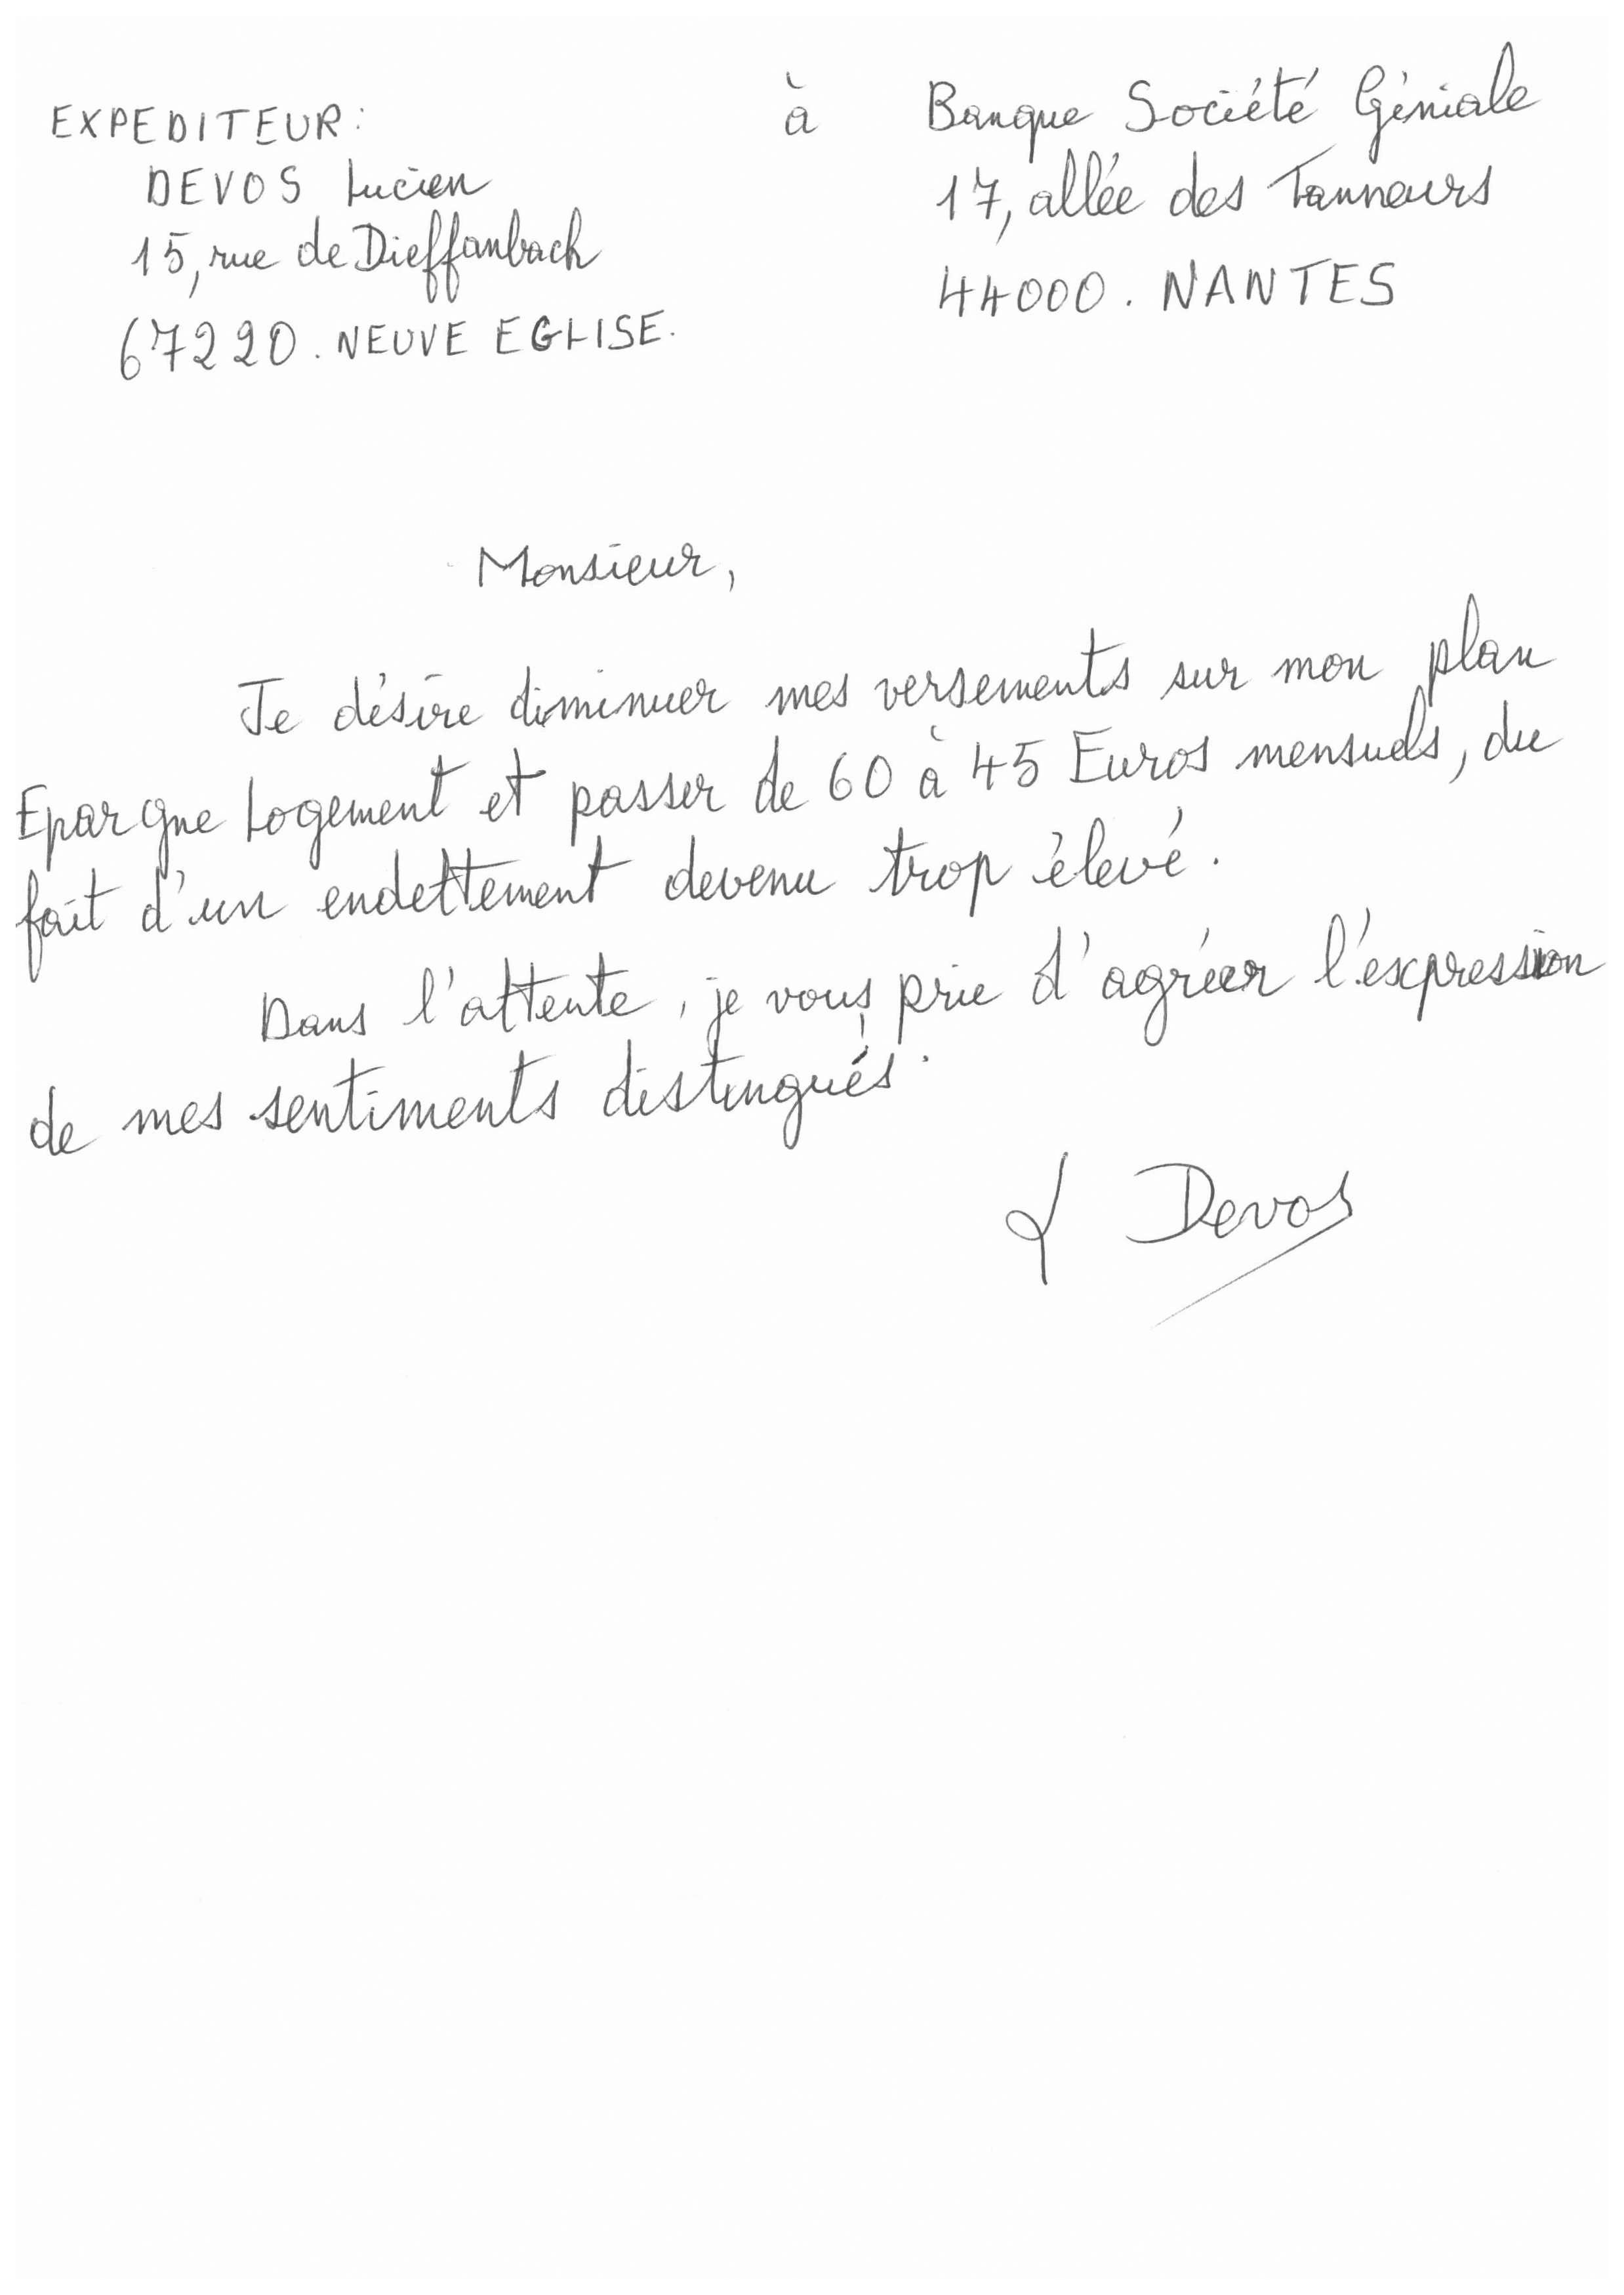 EXPEDITEUR:
DEVOS Lucien
15, rue de Dieffanbach
67220. NEUVE EGLISE.
à Banque Société Géniale
17, allée des Tanneurs
44000. NANTES
Monsieur,
Je désire diminuer mes versements sur mon plan
Epargne Logement et passer de 60 à 45 Euros mensuels, du
fait d'un endettement devenu trop élevé.
Dans l'attente, je vous prie d'agréer l'expression
de mes sentiments distingués.
L Devos